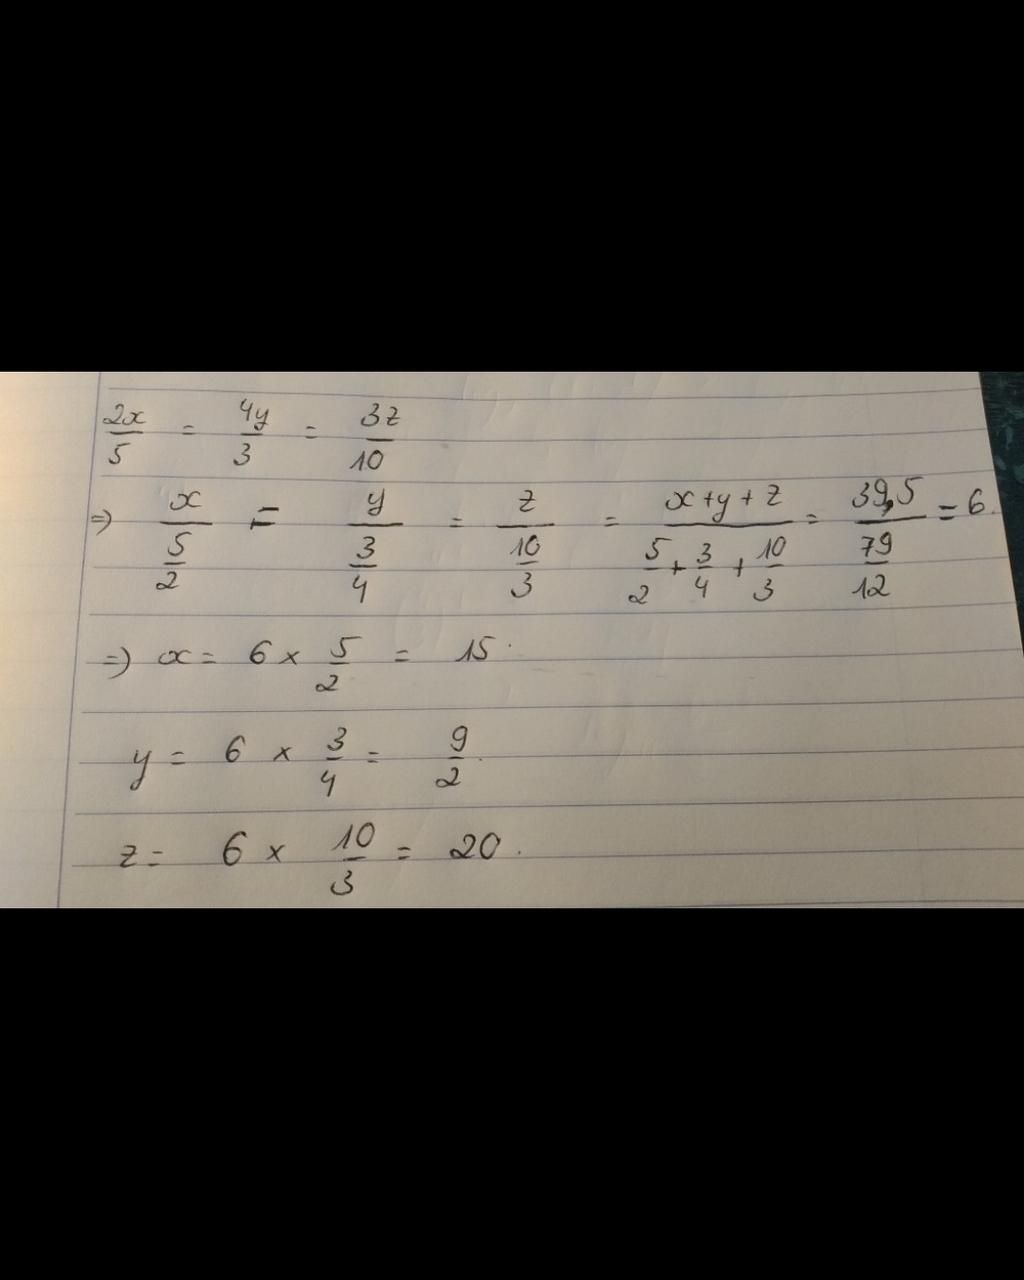 2x/5 = 4y/3 = 3z/10
=> x/(5/2) = y/(3/4) = z/(10/3) = (x+y+z)/(5/2 + 3/4 + 10/3) = 39,5/(79/12) = 6.
=> x = 6 × 5/2 = 15.
y = 6 × 3/4 = 9/2.
z = 6 × 10/3 = 20.